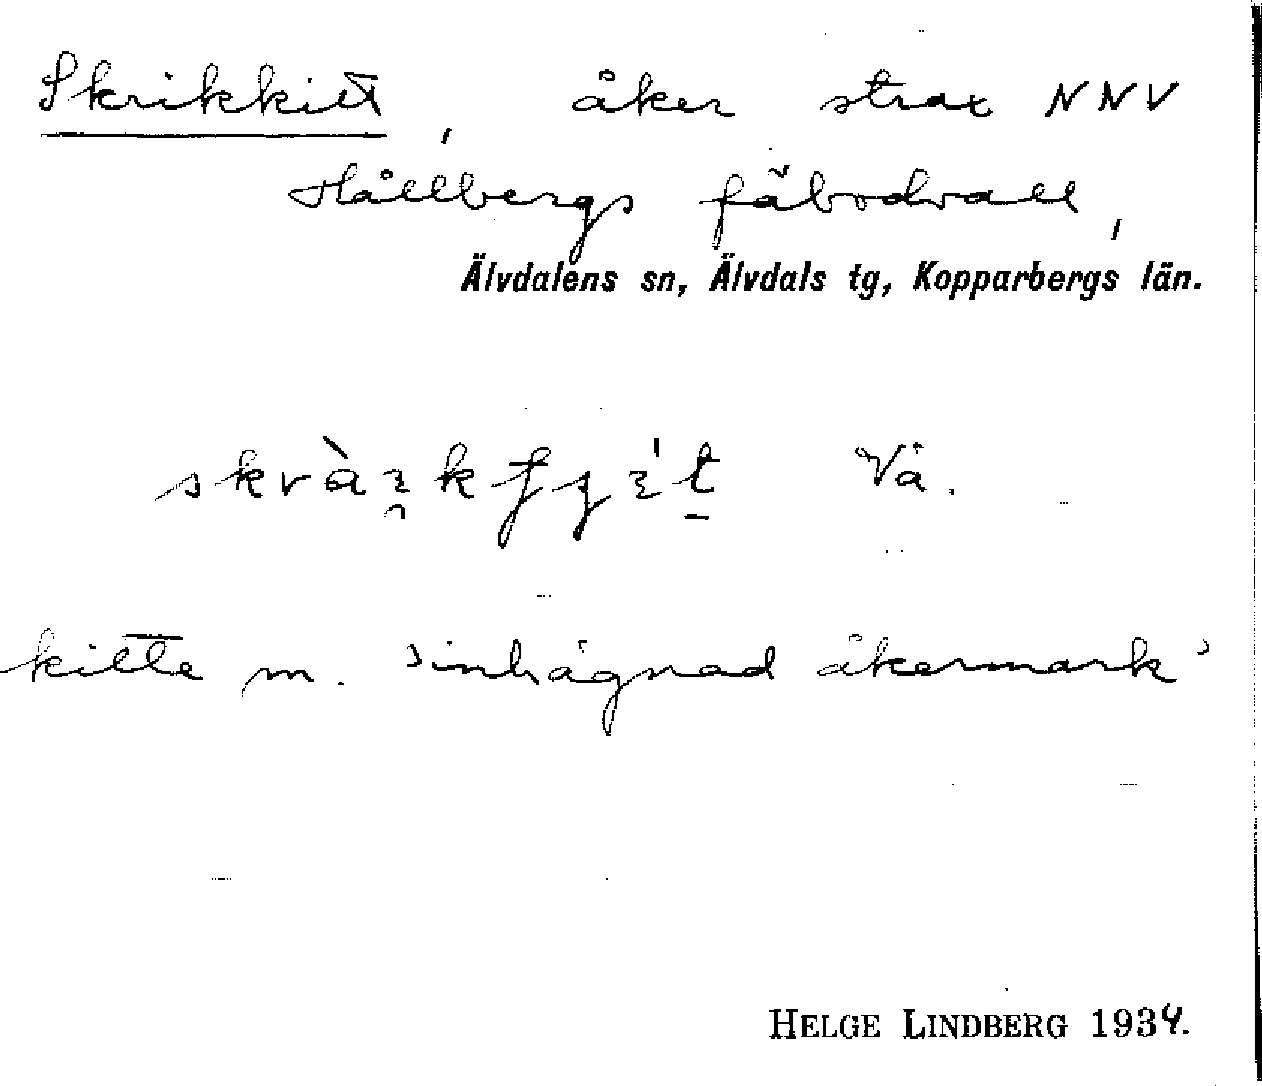 Skrikkitt, åker strax NNV
Hållbergs fäbodvall,
Älvdalens sn, Älvdals tg, Kopparbergs län.
Vä.
kitte m. 'inhägnad åkermark'
HELGE LINDBERG 1934.